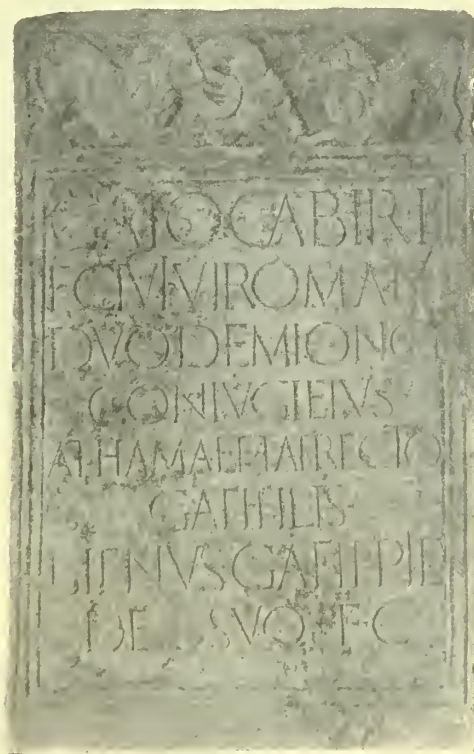 GATO CABIRI
F CIVI VIROMAN
DVO DEMIONC
CONIVGI EIVS
ATHAMAE ET ATRECTO
GATI FILIS
BIENVS GATI F PIE
DE SVO F C